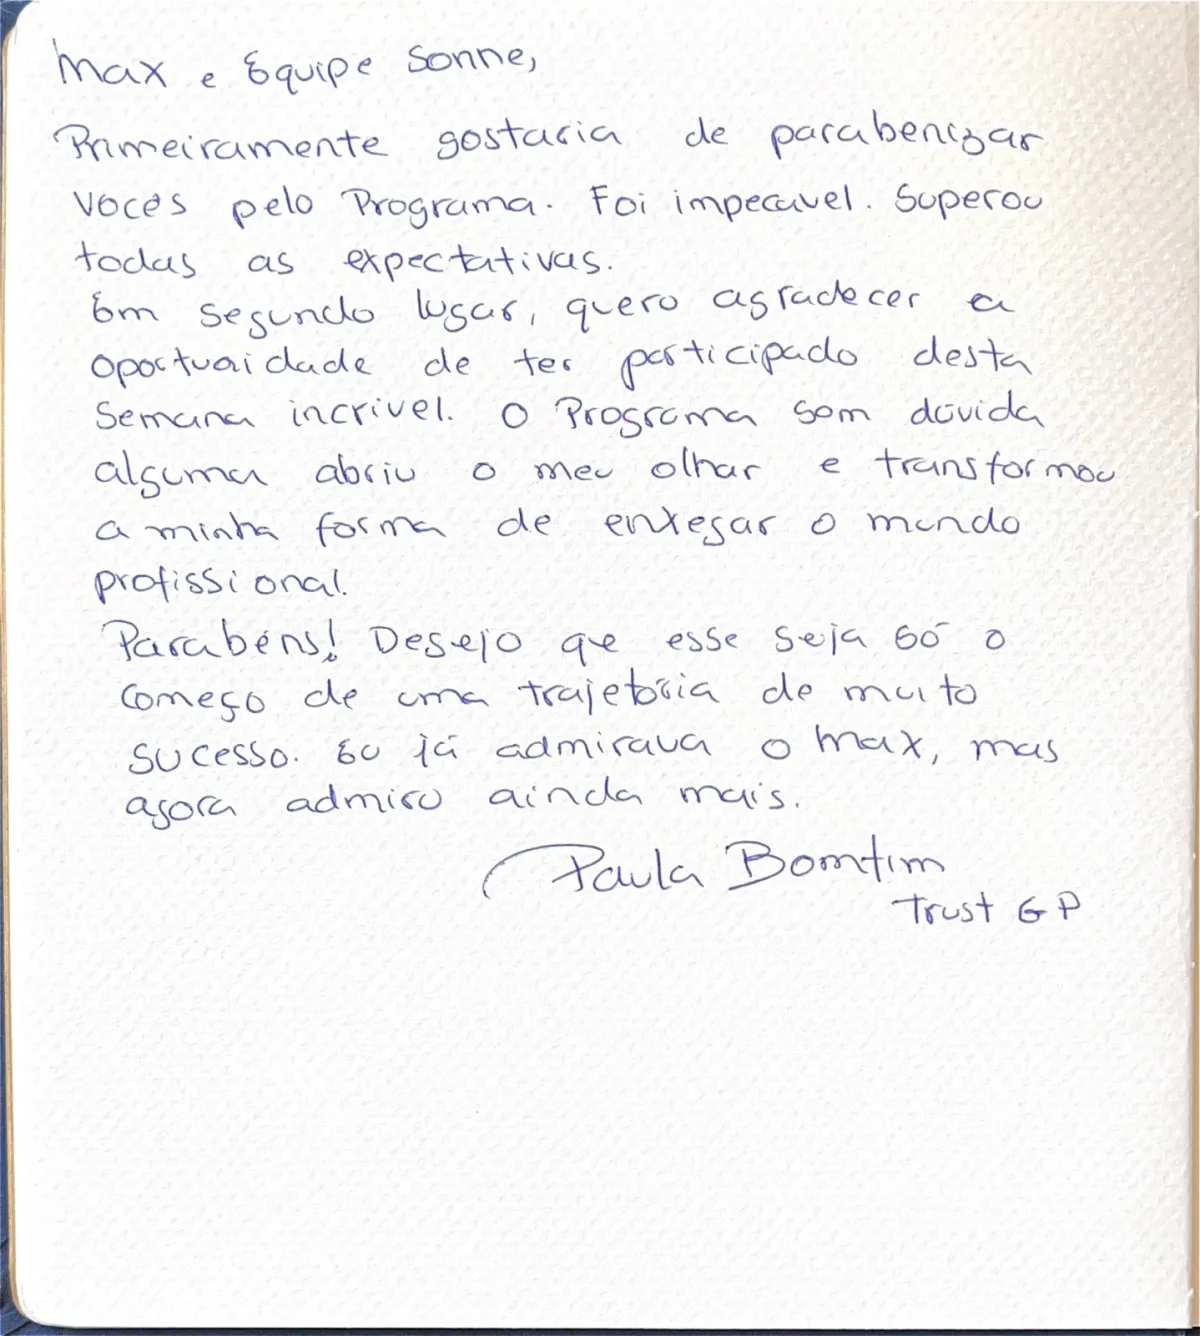 Max e Equipe Sonne,
Primeiramente gostaria de parabenizar
vocês pelo Programa. Foi impecavel. Superou
todas as expectativas.
Em segundo lugar, quero agradecer a
oportunidade de ter participado desta
semana incrivel. O Programa sem dúvida
alguma abriu o meu olhar e transformou
a minha forma de enxegar o mundo
profissional.
Parabéns! Desejo que esse seja só o
começo de uma trajetória de muito
sucesso. Eu já admirava o Max, mas
agora admiro ainda mais.
Paula Bomfim
Trust GP